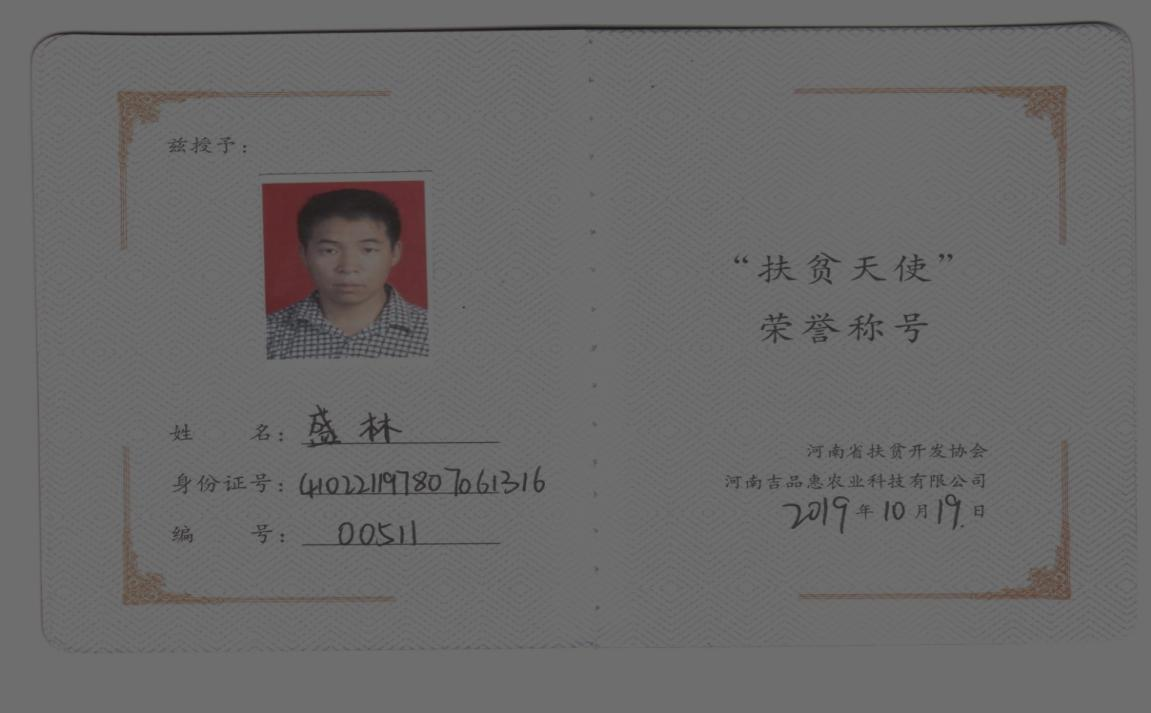 兹授予：
姓 名：盛林
身份证号：410221197807061316
编 号：00511
“扶贫天使”
荣誉称号
河南省扶贫开发协会
河南吉品惠农业科技有限公司
2019年10月19日